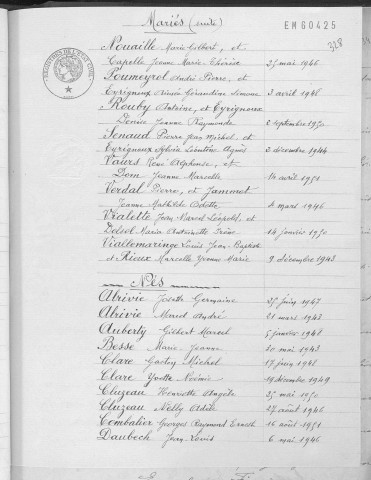 Mariés (suite)
EM60425
328
Nouaille Marie Colbert, et
Capelle Jeanne Marie Thérèse 25 mai 1946
Poumeyrol André Pierre, et
Eyrignoux Simone 3 avril 1948
Rouby Antoine, et Eyrignoux
Denise Jeanne Raymonde 2 septembre 1950
Senaud Pierre Jean Michel, et
Eyrignoux Sylvia Léontine Agnès 2 décembre 1944
Vaurs René Alphonse, et
Dom Jeanne Marcelle 14 avril 1951
Verdal Pierre, et Jammet
Jeanne Mathilde Odette 4 mars 1946
Vialette Jean Marcel Léopold, et
Delsol Maria Antoinette Irène 14 janvier 1950
Viallemaringe Louis Jean Baptiste
et Rieux Marcelle Yvonne Marie 9 décembre 1943
Nés
Abrivie Josette Germaine 25 juin 1947
Abrivie Marcel André 21 mars 1948
Auberty Gilbert Marcel 5 janvier 1948
Besse Marie Jeanne 20 mai 1943
Clare Gaston Michel 17 juin 1948
Clare Yvette Noémie 19 décembre 1949
Cluzeau Henriette Angèle 25 mai 1950
Cluzeau Nelly Adile 27 août 1946
Combalier Georges Raymond Ernest 16 août 1951
Daubech Jean Louis 6 mai 1946